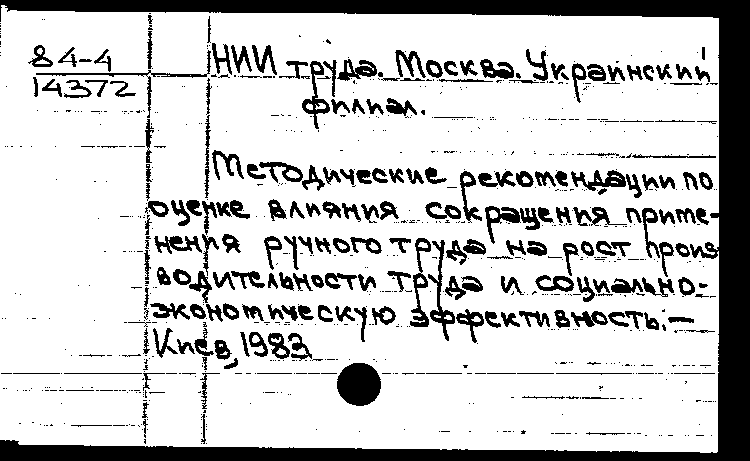 84-4
14372
НИИ труда. Москва. Украинский
филиал.
Методические рекомендации по
оценке влияния сокращения приме-
нения ручного труда на рост произ
водительности труда и социально-
экономическую эффективность. —
Киев, 1983